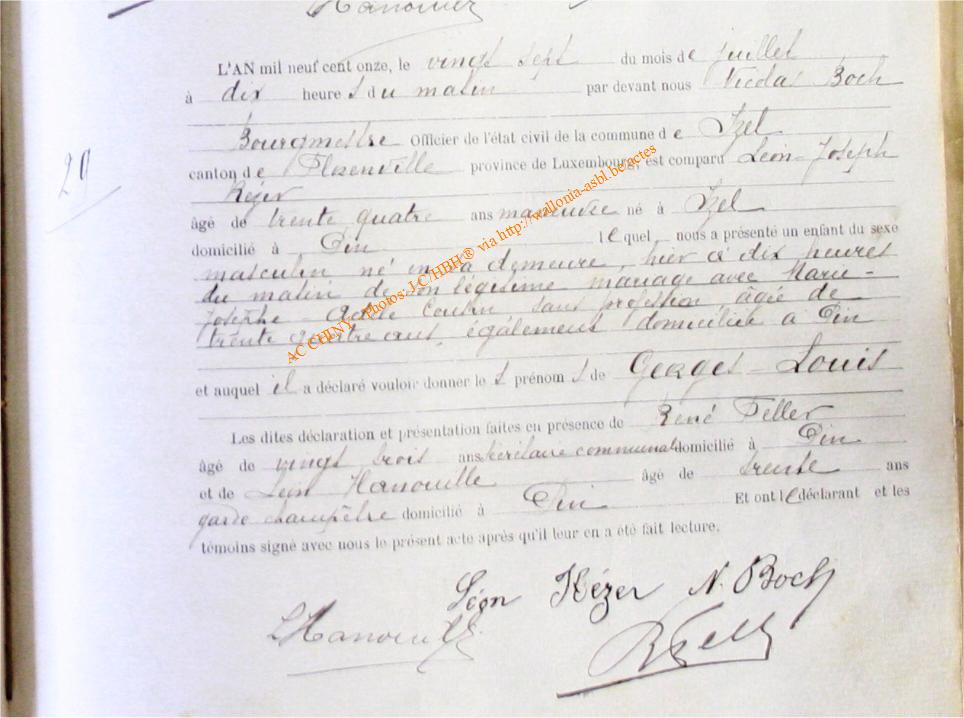 Hanouille
L'AN mil neuf cent onze, le vingt sept du mois de juillet
à dix heure s du matin par devant nous Nicolas Boch
Bourgmestre Officier de l'état civil de la commune d e Izel
29
canton d e Florenville province de Luxembourg, est comparu Léon-Joseph
Kézer
âgé de trente quatre ans manœuvre né à Izel
domicilié à Pin lequel nous a présenté un enfant du sexe
masculin né en sa demeure, hier à dix heures
du matin de son légitime mariage avec Marie-
Josephe-Adèle Cousin sans profession, âgée de
trente quatre ans, également domiciliée à Pin
et auquel il a déclaré vouloir donner le s prénom s de Georges-Louis
Les dites déclaration et présentation faites en présence de René Feller
âgé de vingt trois ans secrétaire communal domicilié à Pin
et de Léon Hanouille âgé de trente ans
garde champêtre domicilié à Pin Et ont le déclarant et les
témoins signé avec nous le présent acte après qu'il leur en a été fait lecture.
Léon Kézer N. Boch
LHanouille
RFeller
AC CHINY - Photos: J.C/HBH® via http://wallonia-asbl.be/actes